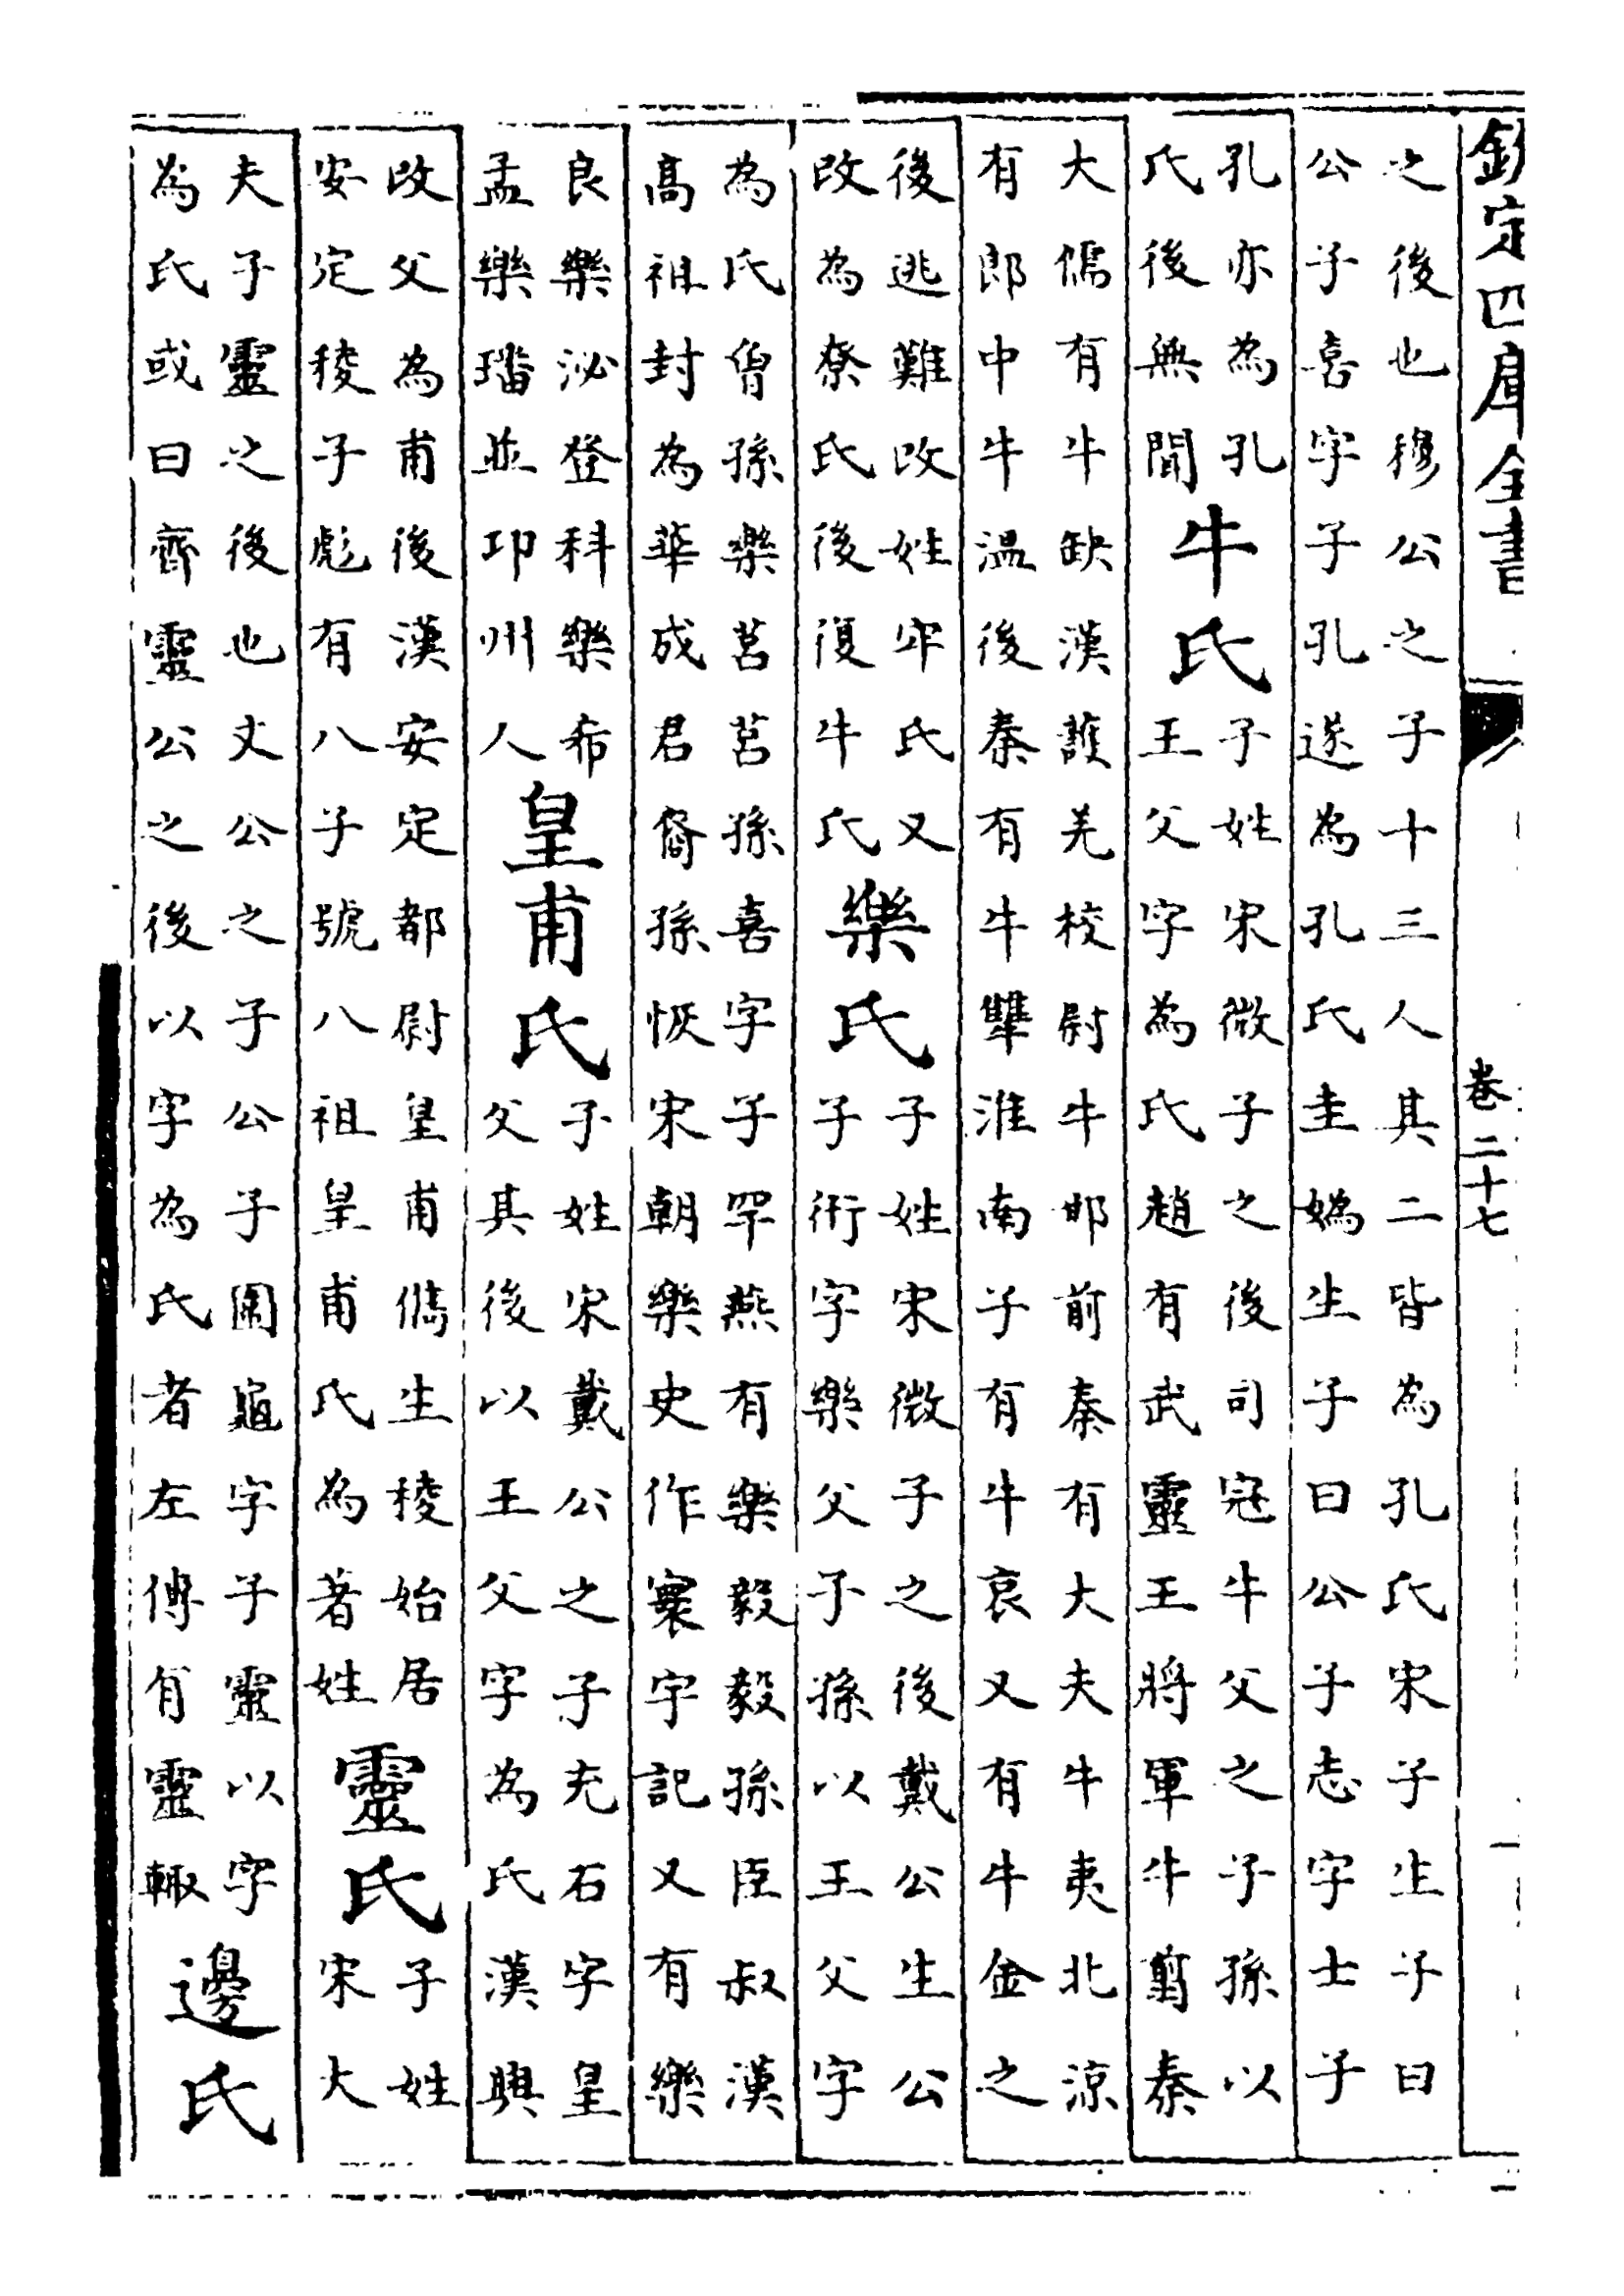 欽定四庫全書
卷二十七
之後也穆公之子十三人其二皆為孔氏宋子生子曰
公子喜字子孔遂為孔氏圭媯生子曰公子志字士子
孔亦為孔
氏後無聞
牛氏
子姓宋微子之後司冦牛父之子孫以
王父字為氏趙有武靈王將軍牛翦秦
大儒有牛缺漢護羌校尉牛邯前秦有大夫牛夷北涼
有郎中牛溫後秦有牛雙淮南子有牛哀又有牛金之
後逃難改姓牢氏又
改為尞氏後復牛氏
樂氏
子姓宋微子之後戴公生公
子衎字樂父子孫以王父字
為氏曾孫樂莒莒孫喜字子罕燕有樂毅毅孫臣叔漢
高祖封為華成君裔孫恢宋朝樂史作寰宇記又有樂
良樂泌登科樂希
孟樂璠並邛州人
皇甫氏
子姓宋戴公之子充石字皇
父其後以王父字為氏漢興
改父為甫後漢安定都尉皇甫儁生稜始居
安定稜子彪有八子號八祖皇甫氏為著姓
靈氏
子姓
宋大
夫子靈之後也文公之子公子圍龜字子靈以字
為氏或曰齊靈公之後以字為氏者左傳有靈輒
邊氏